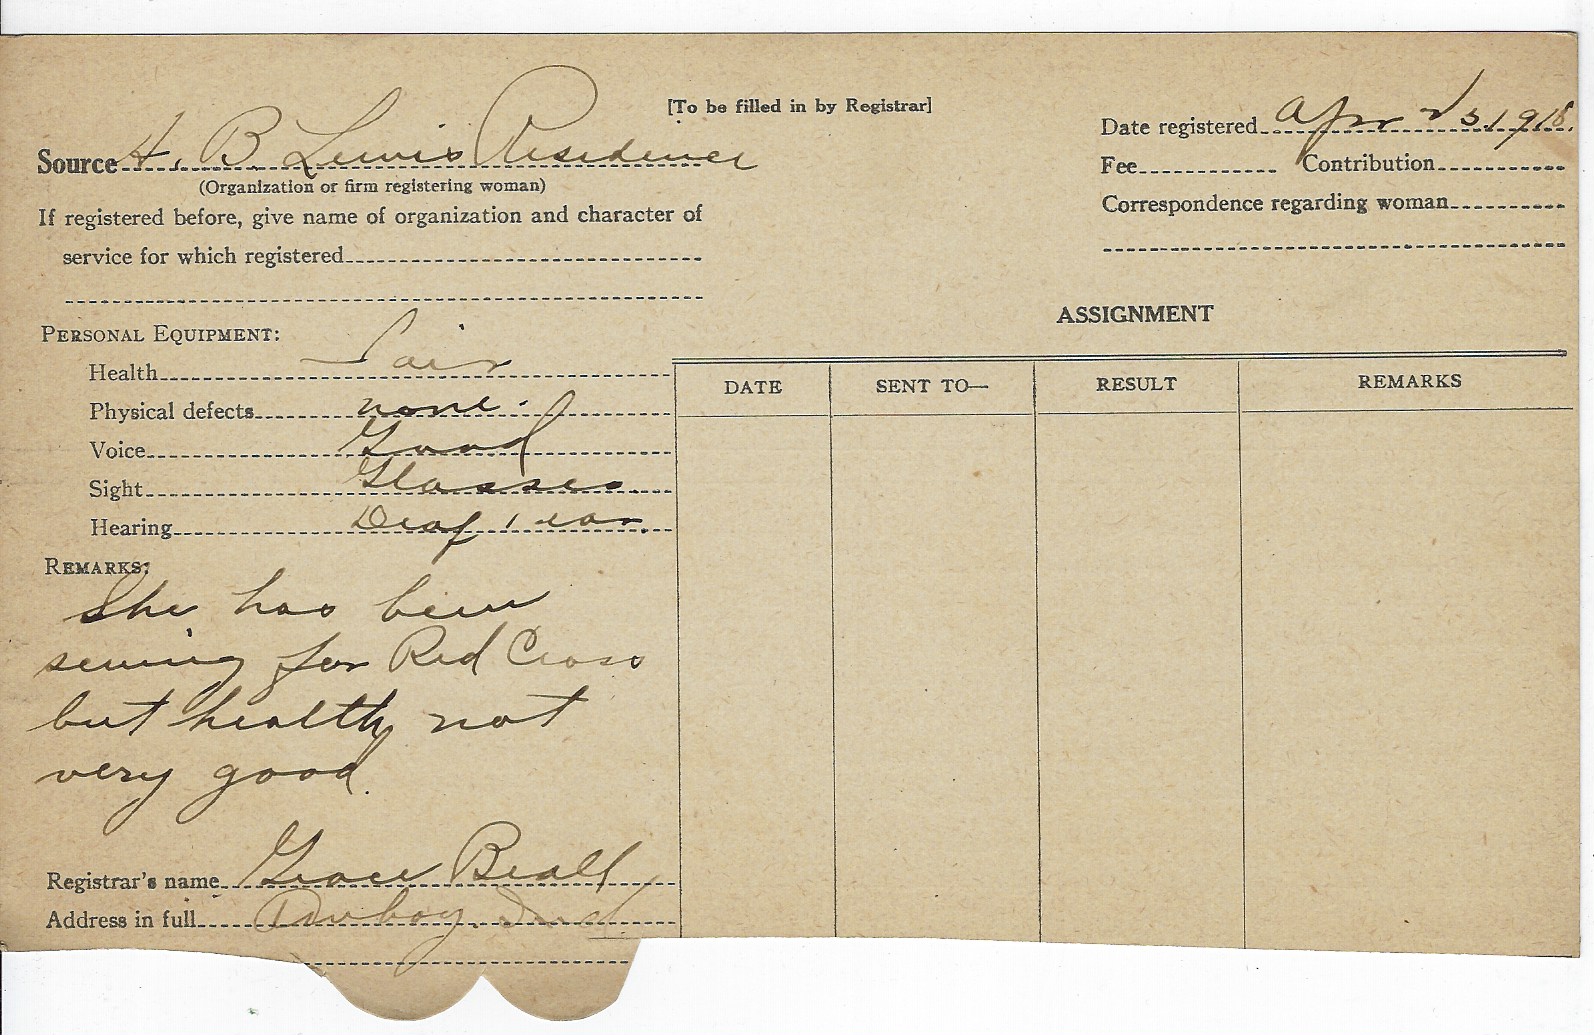 [To be filled in by Registrar]
Source H. B. Lewis Residence
(Organization or firm registering woman)
If registered before, give name of organization and character of
service for which registered
Date registered Apr 25 1918.
Fee Contribution
Correspondence regarding woman
PERSONAL EQUIPMENT:
Health Fair
Physical defects none.
Voice Good
Sight Glasses.
Hearing Deaf 1 ear.
REMARKS:
She has been
sewing for Red Cross
but health not
very good.
Registrar's name Grace Beall
Address in full
ASSIGNMENT
DATE SENT TO— RESULT REMARKS